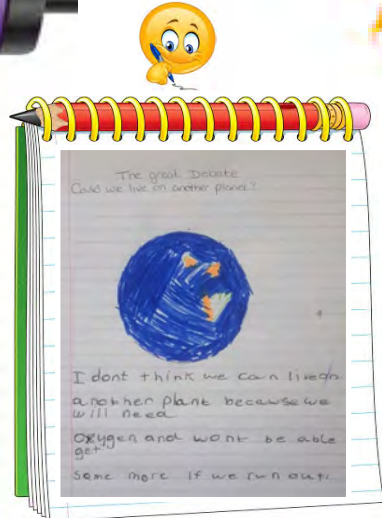 The great Debate
Could we live on another planet?
I dont think we can live on
another plant because we
will need
oxygen and wont be able
get
some more if we run out.